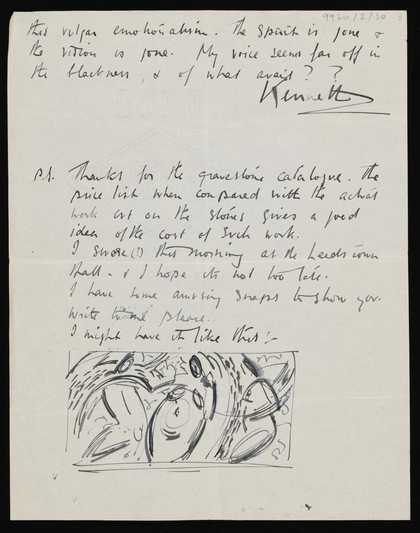 9920/2/20
this vulgar emotionalism. The spirit is gone &
the vision is gone. My voice seems far off in
the blackness, & of what avail? ?
Kenneth
P.S. Thanks for the gravestone catalogue. The
price list when compared with the actual
work cut on the stones gives a good
idea of the cost of such work.
I swore(?) this morning at the Leeds town
Hall - & I hope its not too late.
I have some amusing snaps to show you.
Write please.
I might have it like this:-